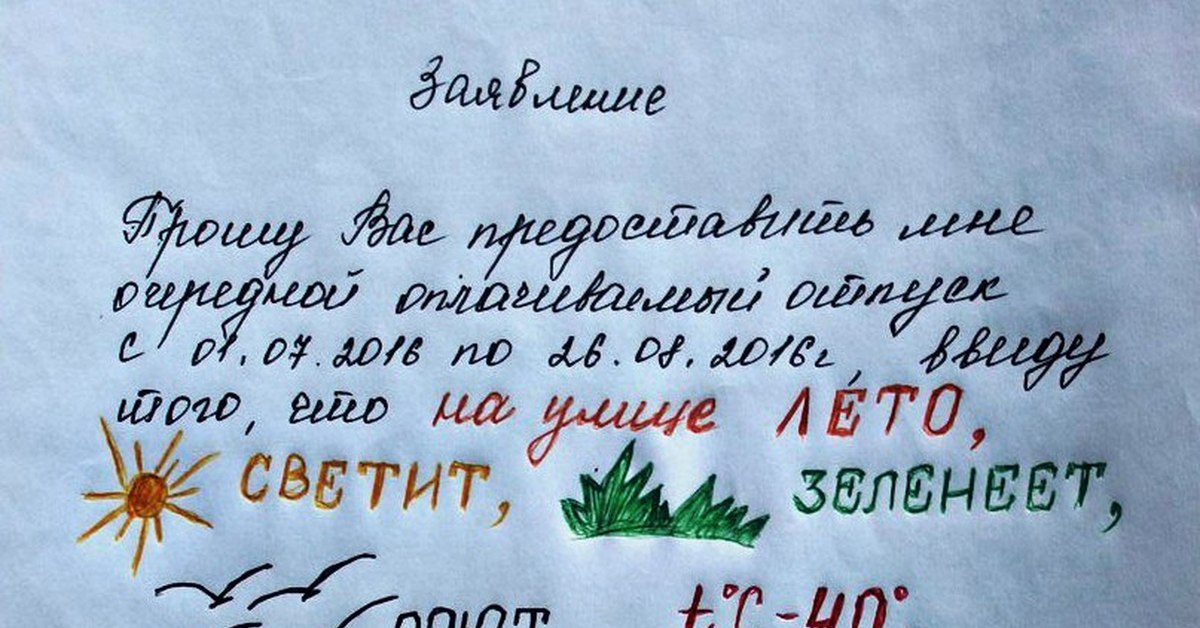 Заявление
Прошу Вас предоставить мне
очередной оплачиваемый отпуск
с 01.07.2016 по 26.08.2016г, ввиду
того, что на улице ЛЕ́ТО,
СВЕТИТ, ЗЕЛЕНЕЕТ,
t°C -40°